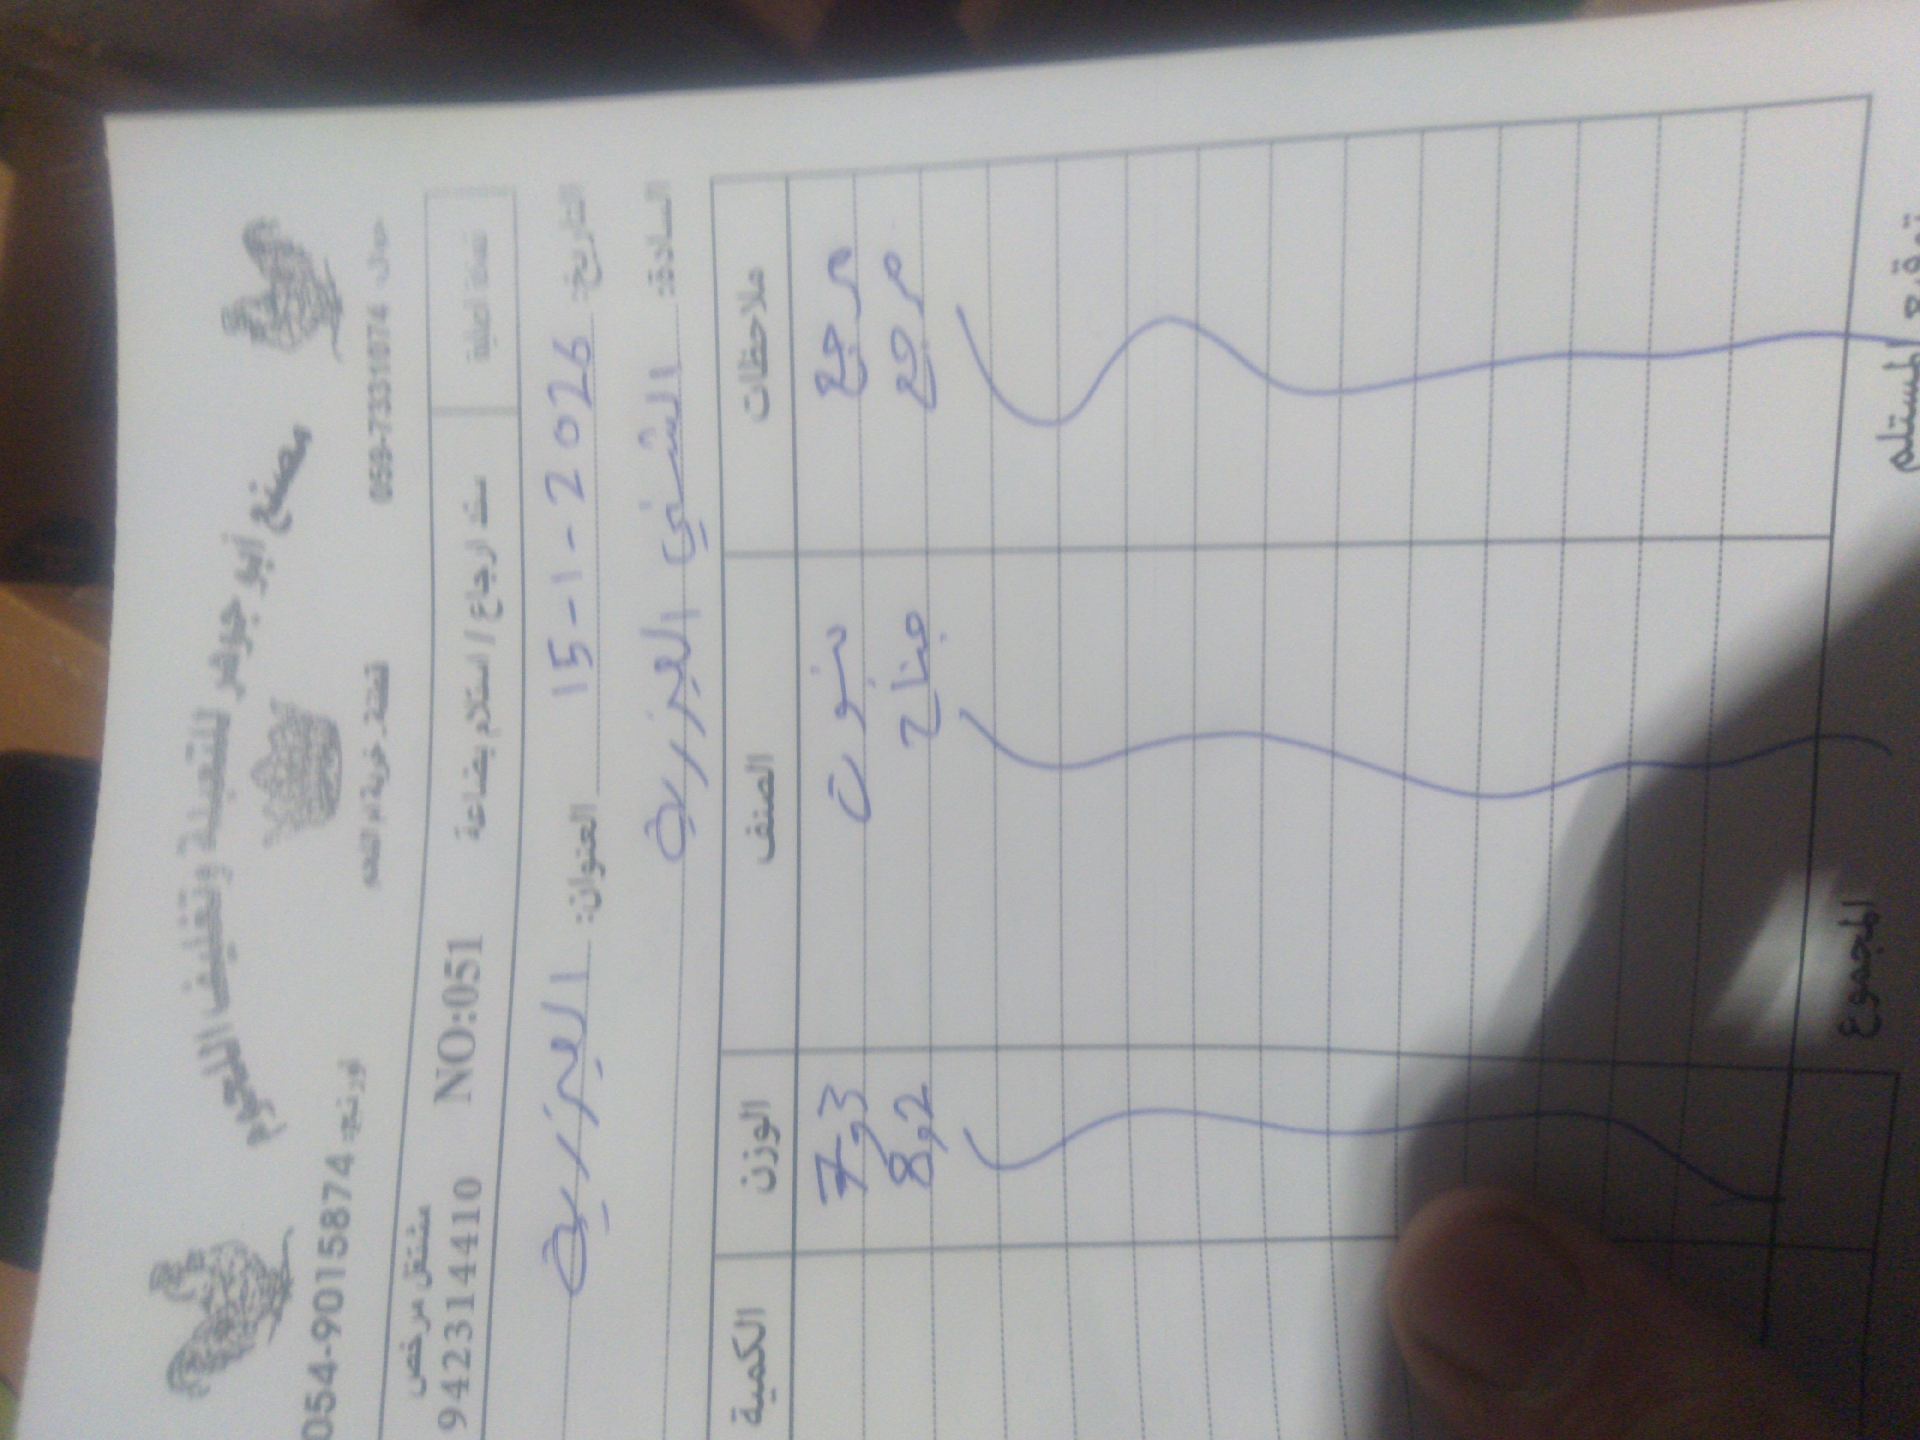 مصنع أبو جوهر للتعبئة وتغليف اللحوم
جوال: 059-7331074 قطنة. خربة ام اللحم اورنج: 054-9015874
نسخة اصلية سند ارجاع / استلام بضاعة NO:051 مشتغل مرخص
942314410
التاريخ: 15-1-2026 العنوان: العيزرية
السادة: العيزرية
ملاحظات الصنف الوزن الكمية
مرجع 7,3
مرجع جناح 8,2
المجموع
توقيع المستلم